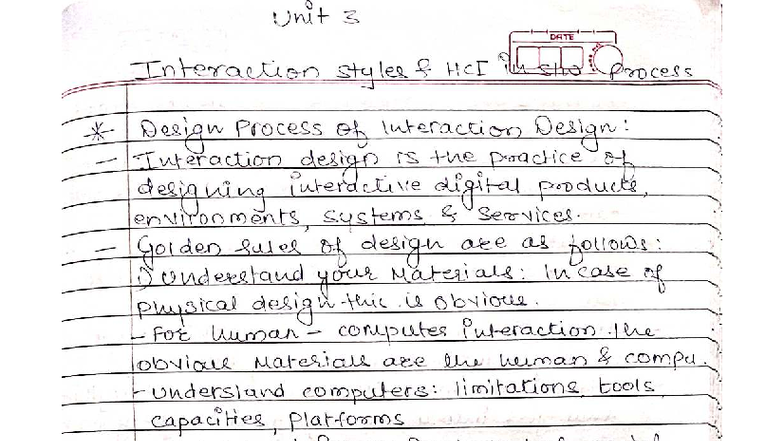 Unit 3
DATE
Interaction styles & HCI in sho Process
* Design Process of Interaction Design:
- Interaction design is the practice of
designing interactive digital products,
environments, systems & services.
- Golden rules of design are as follows:
1) Understand your Materials: In case of
physical design this is obvious.
- For human - computer interaction the
obvious Materials are the human & compu.
- Understand computers: limitations, tools
capacities, Platforms